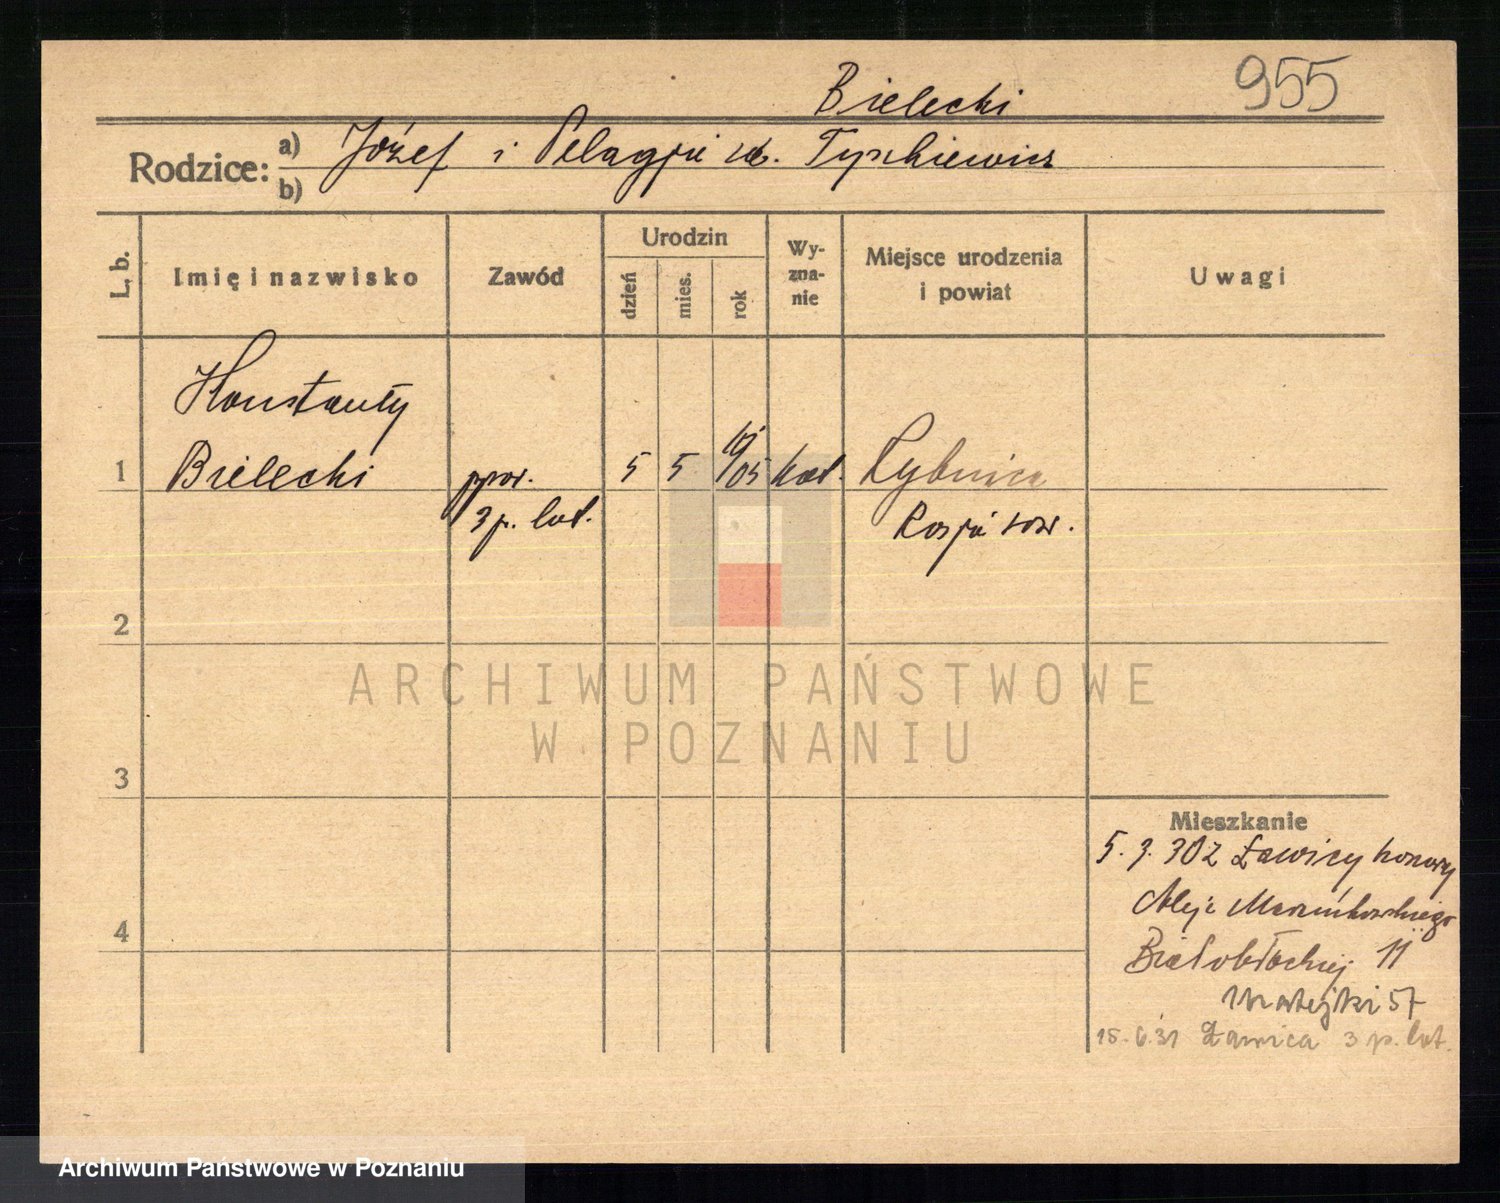 955
Bielecki
Rodzice: a) Józef i Pelagja zd. Tyszkiewicz
b)
L. b.
Imię i nazwisko
Zawód
Urodzin
dzień
mies.
rok
Wy-
zna-
nie
Miejsce urodzenia
i powiat
Uwagi
Konstanty
1 Bielecki ppor. 5 5 1905 kat. Rybnica
3 p. lot. Rosja sow.
2
3
4
Mieszkanie
5. 3. 30 z Ławicy
Aleje Marcinkowskiego
11
Matejki 57
15.6.31 Ławica 3 p. lot.
ARCHIWUM PAŃSTWOWE
W POZNANIU
Archiwum Państwowe w Poznaniu